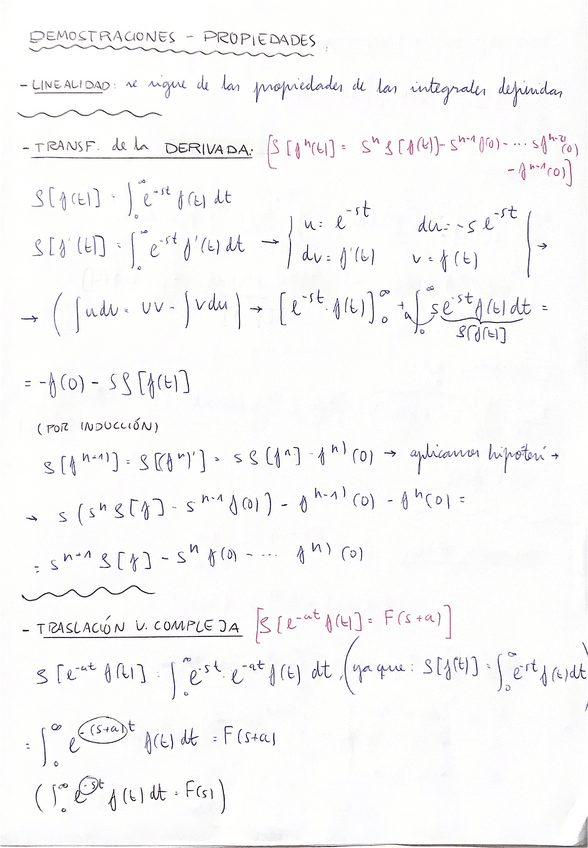 DEMOSTRACIONES - PROPIEDADES
- LINEALIDAD: se sigue de las propiedades de las integrales definidas
- TRANSF. de la DERIVADA: [S[fⁿ(t)] = sⁿ S[f(t)] - sⁿ⁻¹ f(0) - ... s fⁿ⁻²⁾(0)
- fⁿ⁻¹(0)]
S[f(t)] = ∫₀^∞ e^-st f(t) dt
S[f'(t)] = ∫₀^∞ e^-st f'(t) dt → | u = e^-st du = -s e^-st
dv = f'(t) v = f(t) | →
→ (∫udv = uv - ∫vdu) → [e^-st · f(t)]₀^∞ + ∫₀^∞ s e^-st f(t) dt =
S[f(t)]
= -f(0) - s S[f(t)]
(POR INDUCCIÓN)
S[fⁿ⁺¹⁾] = S[(fⁿ)'] = s S[fⁿ] - fⁿ⁾(0) → aplicamos hipótesi →
→ s (sⁿ S[f] - sⁿ⁻¹ f(0)) - fⁿ⁻¹⁾(0) - fⁿ(0) =
= sⁿ⁺¹ S[f] - sⁿ f(0) - ... fⁿ⁾(0)
- TRASLACIÓN V. COMPLEJA [S[e^-at f(t)] = F(s+a)]
S[e^-at f(t)] = ∫₀^∞ e^-st · e^-at f(t) dt, (ya que: S[f(t)] = ∫₀^∞ e^-st f(t) dt)
= ∫₀^∞ e^-(s+a)t f(t) dt = F(s+a)
(∫₀^∞ e^-st f(t) dt = F(s))